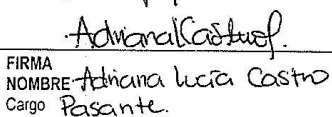 AdrianalCastrof.
FIRMA
NOMBRE Adriana lucía Castro
Cargo Pasante.